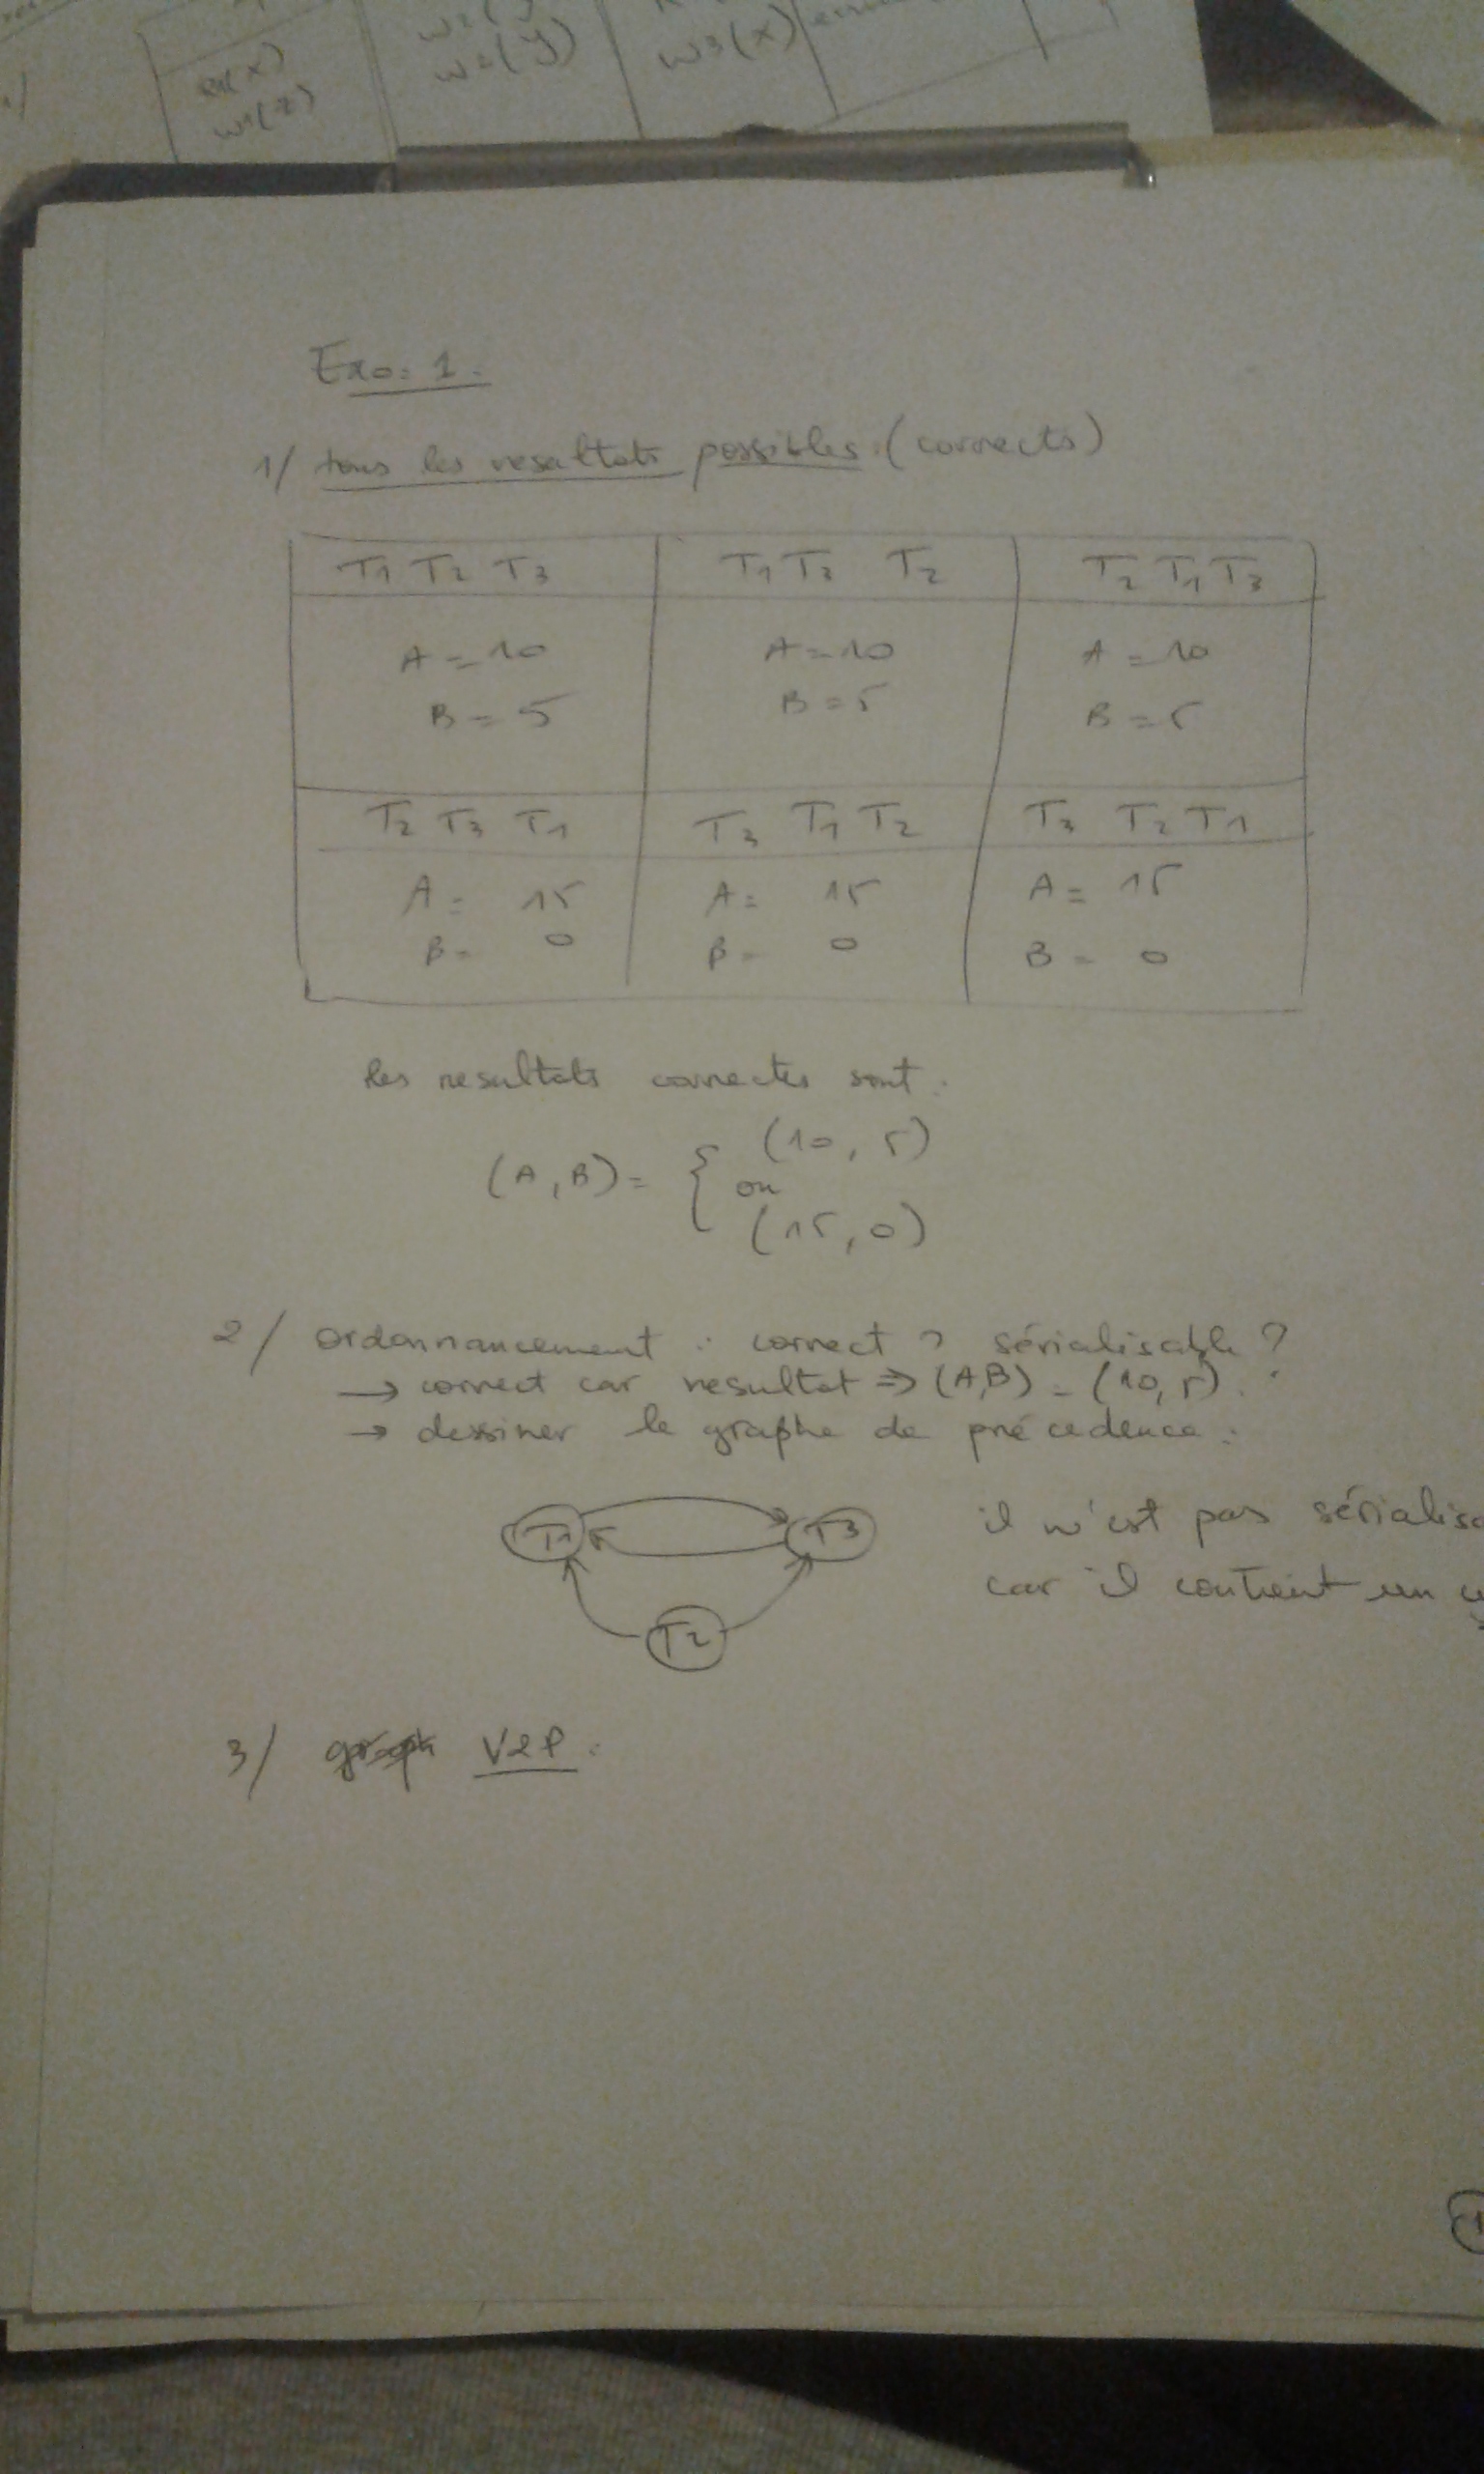 w2(y)
w3(x)
w1(z)
Exo: 1.
1/ tous les resultats possibles: (corrects)
T1 T2 T3
T1 T3 T2
T2 T1 T3
A = 10
A = 10
A = 10
B = 5
B = 5
B = 5
T2 T3 T1
T3 T1 T2
T3 T2 T1
A = 15
A = 15
A = 15
B = 0
B = 0
B = 0
les resultats correctes sont:
(A, B) = { (10, 5)
ou
(15, 0)
2/ ordonnancement : correct ? sérialisable ?
→ correct car resultat ⇒ (A,B) = (10, 5).
→ dessiner le graphe de précedence:
T1 T3
il n'est pas sérialisa
car il contient un cy
T2
3/ V2P: